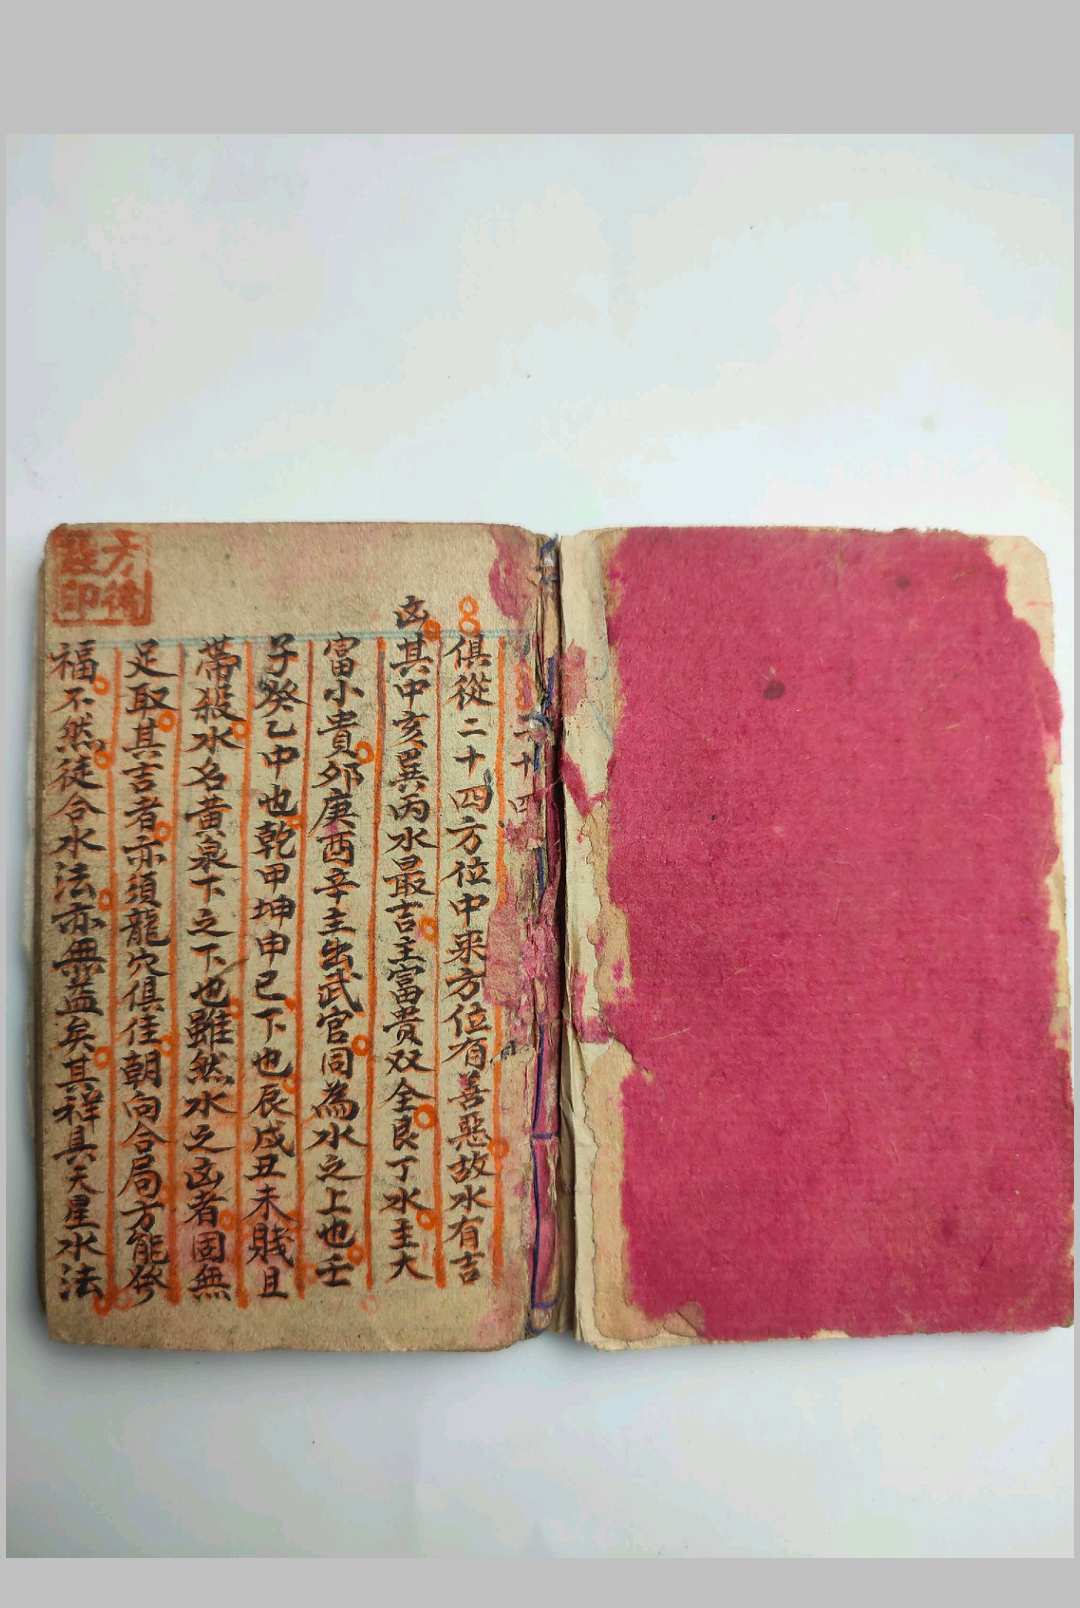 二十四
俱從二十四方位中來方位有善惡故水有吉
凶其中亥巽丙水最吉主富貴双全艮丁水主大
富小貴夘庚酉辛主出武官同為水之上也壬
子癸乙中也乾甲坤申巳下也辰戍丑未賎且
帶殺水名黃泉下之下也雖然水之凶者固無
足取其吉者亦須龍穴俱佳朝向合局方能發
福不然徒合水法亦無益矣其祥具天星水法
印